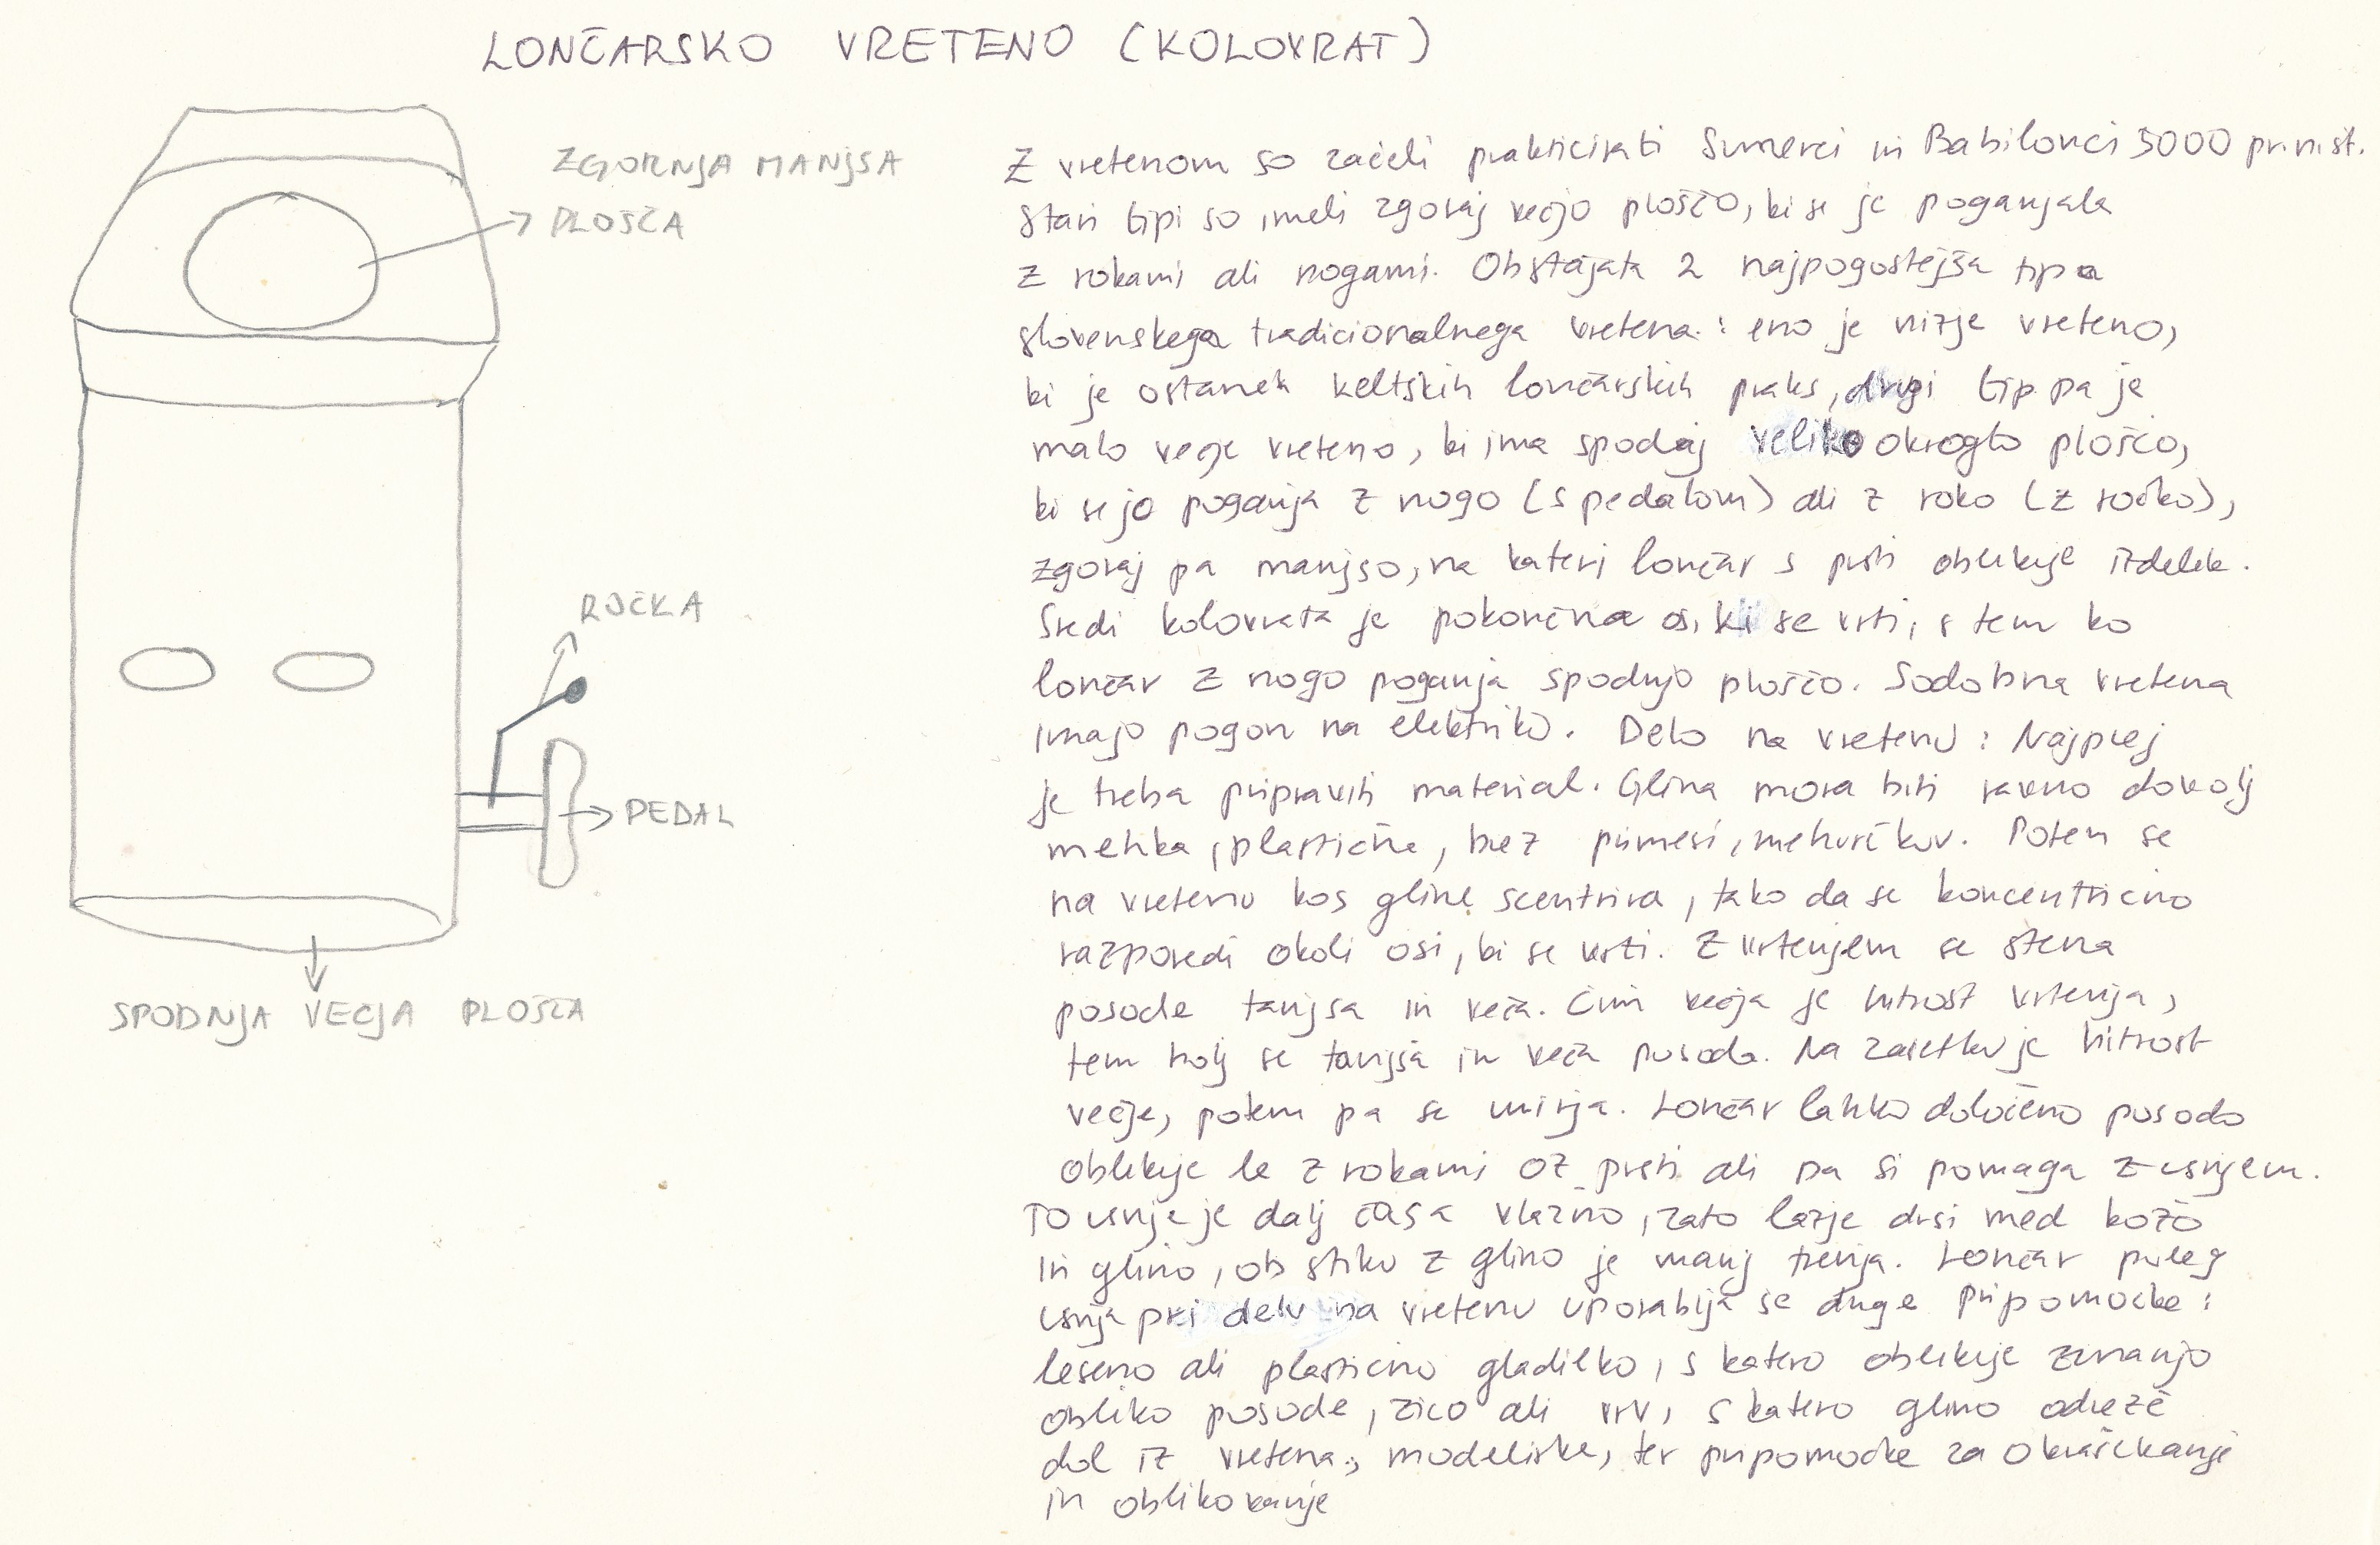 LONČARSKO VRETENO (KOLOVRAT)
ZGORNJA MANJŠA
PLOŠČA
ROČKA
PEDAL
SPODNJA VEČJA PLOŠČA
Z vretenom so začeli prakticirati Sumerci in Babilonci 3000 pr.n.št.
Stari tipi so imeli zgoraj večjo ploščo, ki se je poganjala
z rokami ali nogami. Obstajata 2 najpogostejša tipa
slovenskega tradicionalnega vretena: eno je nižje vreteno,
ki je ostanek keltskih lončarskih praks, drugi tip pa je
malo večje vreteno, ki ima spodaj veliko okroglo ploščo,
ki se jo poganja z nogo (s pedalom) ali z roko (z ročko),
zgoraj pa manjšo, na kateri lončar s prsti oblikuje izdelek.
Sredi kolovrata je pokončna os, ki se vrti, s tem ko
lončar z nogo poganja spodnjo ploščo. Sodobna vretena
imajo pogon na elektriko. Delo na vretenu: Najprej
je treba pripraviti material. Glina mora biti ravno dovolj
mehka, plastična, brez primesi, mehurčkov. Potem se
na vretenu kos gline scentrira, tako da se koncentrično
razporedi okoli osi, ki se vrti. Z vrtenjem se stena
posode tanjša in veča. Čim večja je hitrost vrtenja,
tem bolj se tanjša in veča posoda. Na začetku je hitrost
večje, potem pa se umirja. Lončar lahko določeno posodo
oblikuje le z rokami oz prsti ali pa si pomaga z usnjem.
To usnje je dalj časa vlažno, zato lažje drsi med kožo
in glino, ob stiku z glino je manj trenja. Lončar poleg
usnja pri delu na vretenu uporablja še druge pripomočke:
leseno ali plastično gladilko, s katero oblikuje zunanjo
obliko posode, žico ali vrv, s katero glino odreže
dol iz vretena, modelirke, ter pripomočke za okraševanje
in oblikovanje